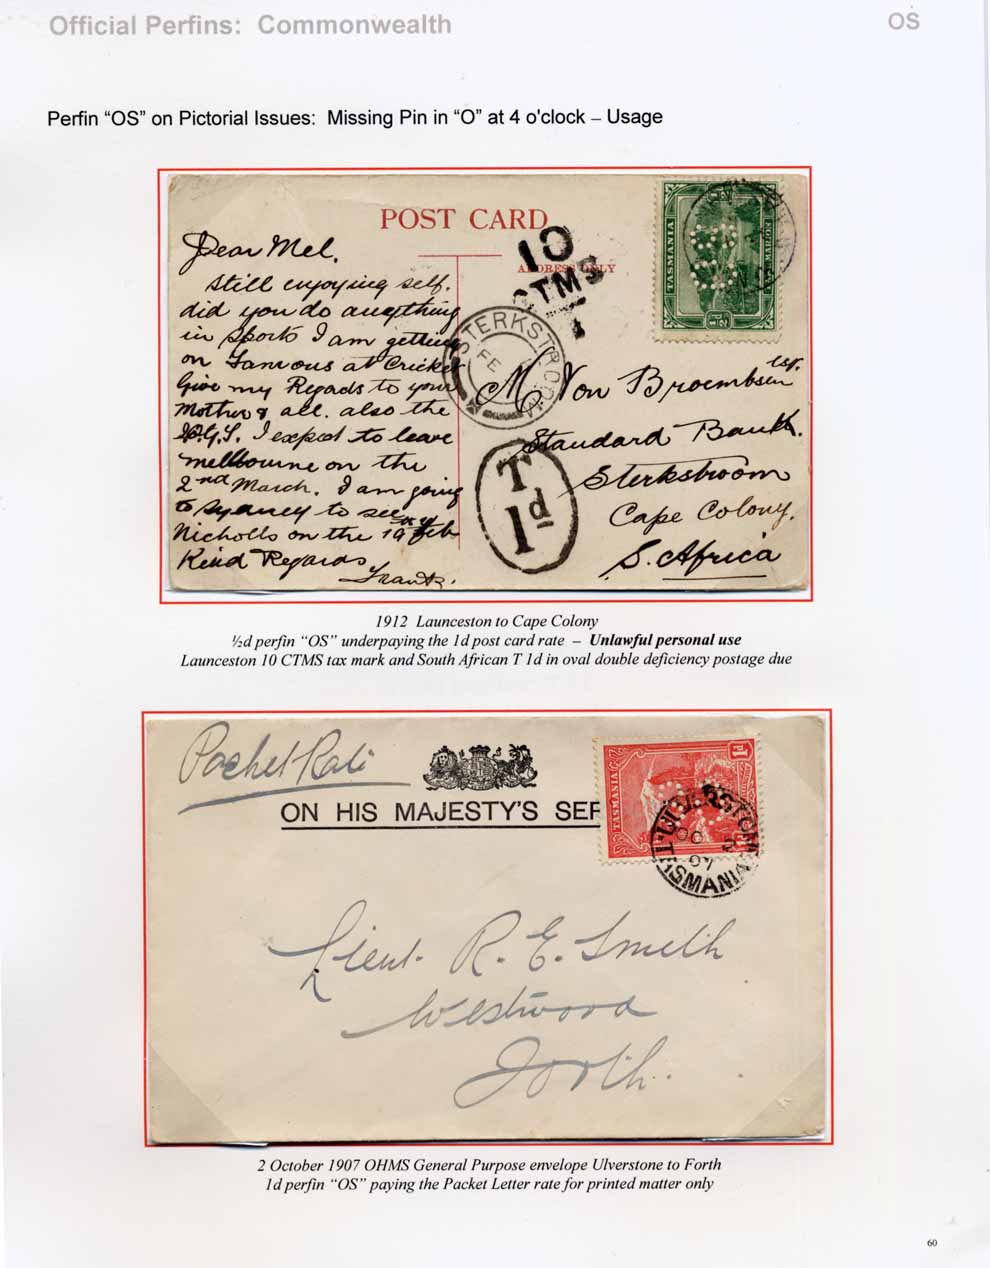 Official Perfins: Commonwealth
OS
Perfin "OS" on Pictorial Issues: Missing Pin in "O" at 4 o'clock – Usage
POST CARD
ADDRESS ONLY
10
CTMS
TASMANIA
½d
Dear Mel,
Still enjoying self.
did you do anything
in Sports I am getting
on famous at Cricket
Give my Regards to your
Mother & all. also the
I expect to leave
Melbourne on the
2nd March. I am going
to Sydney to see
Nicholls on the 19 Feb
Kind Regards
Frank.
STERKSTROOM
FE
M Von Broembsen Esq.
Standard Bank.
Sterkstroom
Cape Colony.
S. Africa
T
1d
1912 Launceston to Cape Colony
½d perfin "OS" underpaying the 1d post card rate – Unlawful personal use
Launceston 10 CTMS tax mark and South African T 1d in oval double deficiency postage due
Packet Rate
ON HIS MAJESTY'S SER
TASMANIA
1d
ULVERSTONE
OC 2
07
TASMANIA
Lieut. R. E. Smith
Westwood
Forth.
2 October 1907 OHMS General Purpose envelope Ulverstone to Forth
1d perfin "OS" paying the Packet Letter rate for printed matter only
60